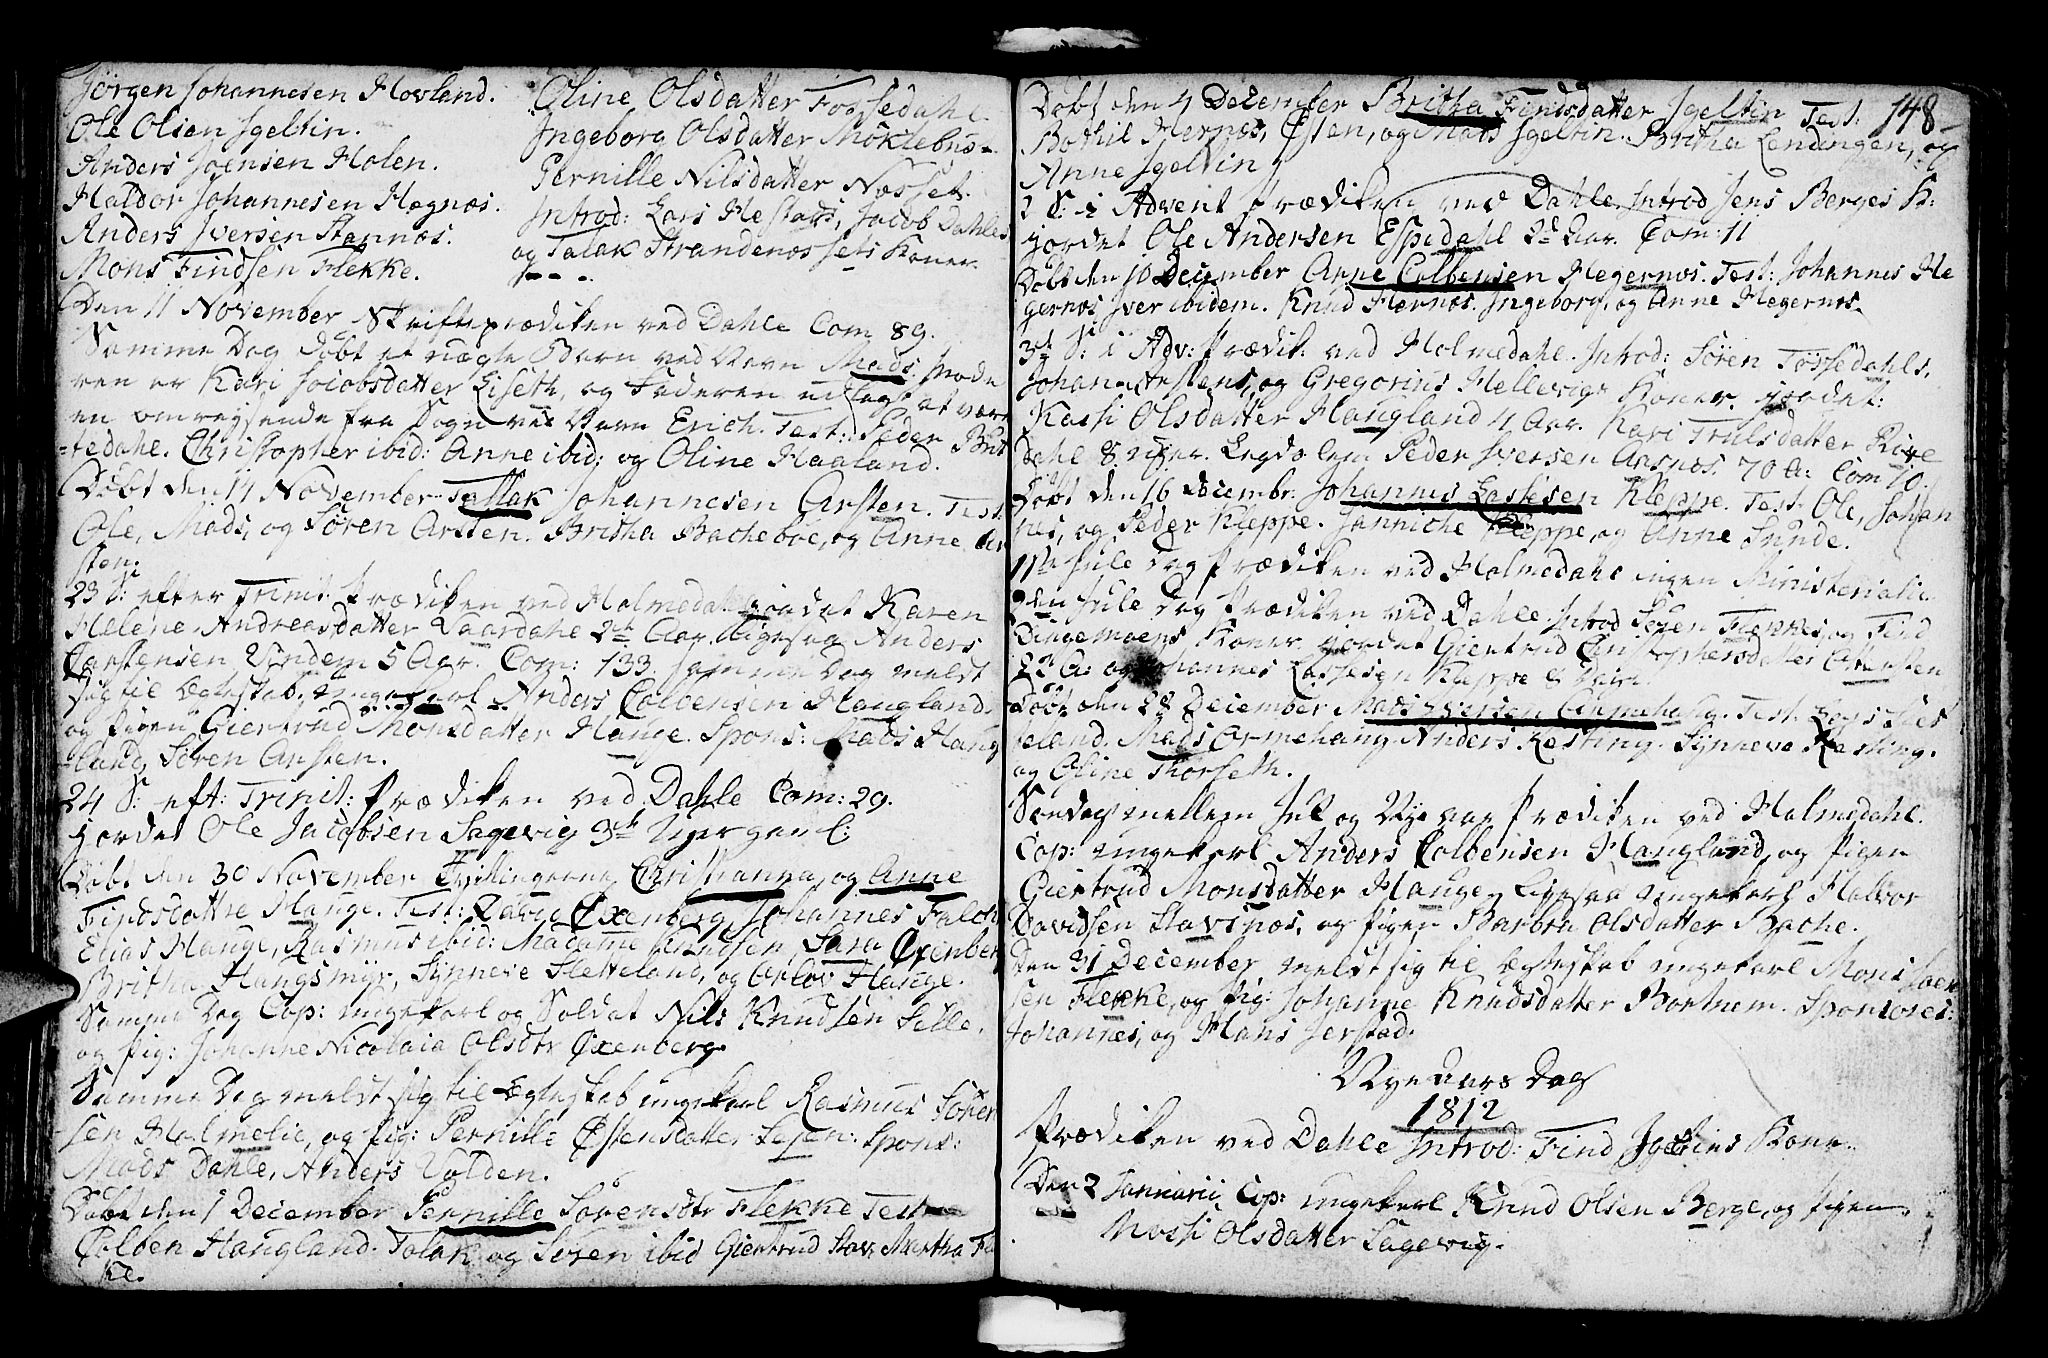 Jörgen Johannesen Hovland.
Ole Olsen Igeltin.
Anders Joensen Holen.
Haldor Johannesen Hegnæs.
Anders Iversen Stannæs.
Mons Findsen Flekke.
Oline Olsdatter Fossedahl
Ingeborg Olsdatter Möklebus-
Pernille Nilsdatter Næsset.
Introd: Lars Hestads, Jacob Dahles
og Talak Strandenæssets Koner.
Den 11 November Skrifteprædiken ved Dahle Com 89.
Samme Dag döbt et uægte Barn ved Navn Mads, Mode
ren er Kari Jacobsdatter Liseth, og Faderen udlagt at være
en omreysende fra Sogn ved Navn Erich. Test: Peder
tedahl. Christopher ibid: Anne ibid; og Oline Haaland.
Döbt den 14 November Tallak Johannesen Arsten. Test.
Ole, Mads, og Sören Arsten. Britha Bacheböe, og Anne Ar
sten.
23 S: efter Trinit. Prædiken ved Holmedahl jordet Karen
Helene Andreasdatter Laardahl 2de Aar. ligesaa Anders
Carstensen Vindem 5 Aar. Com: 133. samme Dag meldt
sig til Ægteskab ungekarl Anders Colbensen Haugland.
og Pigen Giertrud Monsdatter Hauge. Spons: Mads Haug
land, Sören Arsten.
24 S: eft: Trinit: Prædiken ved Dahle Com: 29.
jordet Ole Jacobsen Sagevig 3de Uger gaml:
Döbt den 30 November Tvillingerne Christianna og Anne
Findsdattre Hauge. Test: Øxenberg, Johannes Falch
Elias Hauge, Rasmus ibid: Madame Knudsen, Sara Øxenberg
Britha Haugsmyr, Synneve Sletteland, og Orlov Hauge.
Samme Dag Cop: ungekarl og Soldat Nils Knudsen Sille.
og Pig: Johanne Nicolaia Olsdtr Øxenberg.
Samme Dag meldt sig til Ægteskab ungekarl Rasmus Sören
sen Holmelie, og Pig: Pernille Østensdatter Spons:
Mads Dahle, Anders Volden.
Döbt den 1 December Pernille Sörensdtr Flekke Test
Colben Haugland. Talak og Sören ibid Giertrud Stav: Martha Fle
ke.
148
Döbt den 4 December Britha Findsdatter Igeltin Test:
Bothil Hernes, Østen, og Mads Igeltin. Britha Lendingen, og
Anne Igeltin
2 S: i Advent Prædiken ved Dahle Introd Jens Berges K:
jordet Ole Andersen Espedahl 2de Aar. Com: 11
Döbt den 10 December Anne Colbensen Hegernæs. Test: Johannes He
gernæs Iver ibidem. Knud Hernæs. Ingeborg, og Anne Hegernæs.
3de S: i Adv: Prædik: ved Holmedahl. Introd: Sören Tössedahls,
Johan Arstens, og Gregorius Hellevigs Koner. jordet:
Kassi Olsdatter Haugland 4 Aar. Kari Trulsdatter
dahl 8 Uger. Legdslem Peder Iversen Aasnæs. 70 A: Com 70.
Döbt den 16 Decembr: Johannes Lassesen Kleppe. Test. Ole, Johan
nes, og Peder Kleppe. Janniche Kleppe, og Anne Sunde.
1ste Jule Dag Prædiken ved Holmedahl ingen Ministerialia
2den Jule Dag Prædiken ved Dahle Introd Sören Flekkes, og Find
Dingemoens Koner jordet Giertrud Christophersdatter
A: og Johannes Lassesen Kleppe 8 Dage.
Döbt den 28 December Mads Iversen Ormehaug. Test. Lars
seland. Mads Ormehaug Anders Kesting. Synneve Kesting.
og Oline Thorseth.
Söndag mellem Jul og Nye aar Prædiken ved Holmedahl.
Cop: ungekarl Anders Colbensen Haugland, og Pigen
Giertrud Monsdatter Hauge. ligesaa ungekarl Halvor
Davidsen Stavenæs, og Pigen Barbra Olsdatter Bache.
Den 31 December meldt sig til Ægteskab ungekarl Mons Joen
sen Flekke, og Pig: Johanne Knudsdatter Bortnem. Sponsores:
Johannes, og Hans Jerstad.
Nye Aars Dag
1812
Prædiken ved Dahle Introd: Find Igeltins Kone.
Den 2 Januarii Cop: ungekarl Knud Olsen Berge, og Pigen
Massi Olsdatter Sagevig.